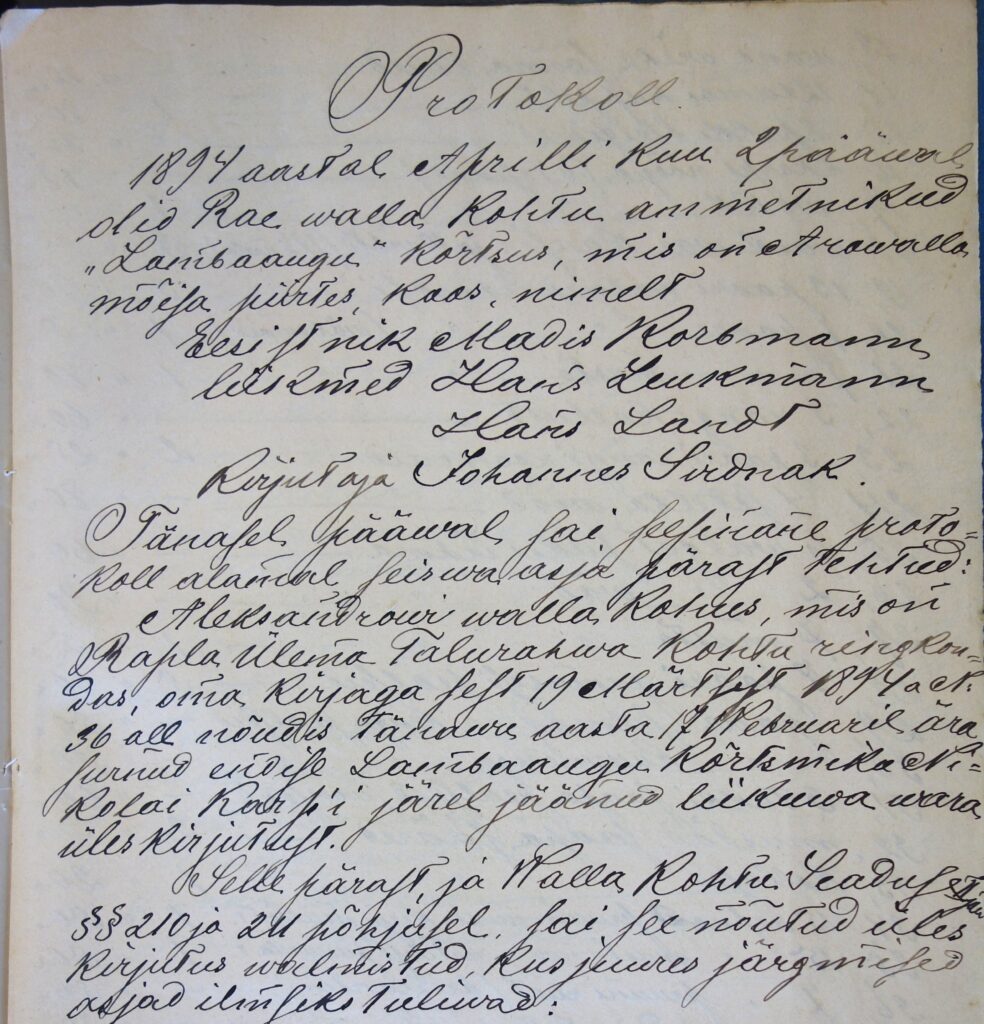 Protokoll.
1894 aastal Aprilli kuu 2 pääwal
olid Rae walla kohtu ammetnikud
„Lambaaugu“ kõrtsus, mis on Arowalla
mõisa piirtes, koos, nimelt
Eesistnik Madis Korbmann
liikmed Hans Leukmann
Hans Landt
Kirjutaja Johannes Sirdnak.
Tänasel pääwal sai seesinane proto=
koll alamal seiswa asja pärast tehtud:
Aleksandrowi walla kohus, mis on
Rapla Ülema Talurahwa Kohtu ringkon=
das, oma kirjaga sest 19 Märtsist 1894 a N.
36 all nõudis tänawu aasta 17 Webruaril ära
surnud endise Lambaaugu kõrtsmika Ni=
kolai Karp'i järel jäänud liikuwa wara
üleskirjutust.
Selle pärast, ja Walla Kohtu Seaduse
§§ 210 ja 211 põhjusel, sai see nõutud üles
kirjutus walmistud, kus juures järgmised
asjad ilmsiks tuliwad: